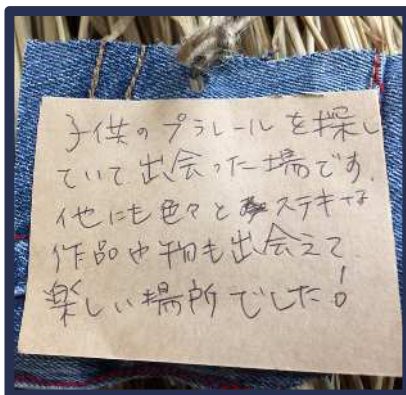 子供のプラレールを探し
ていて出会った場です。
他にも色々とステキな
作品や物も出会えて
楽しい場所でした!